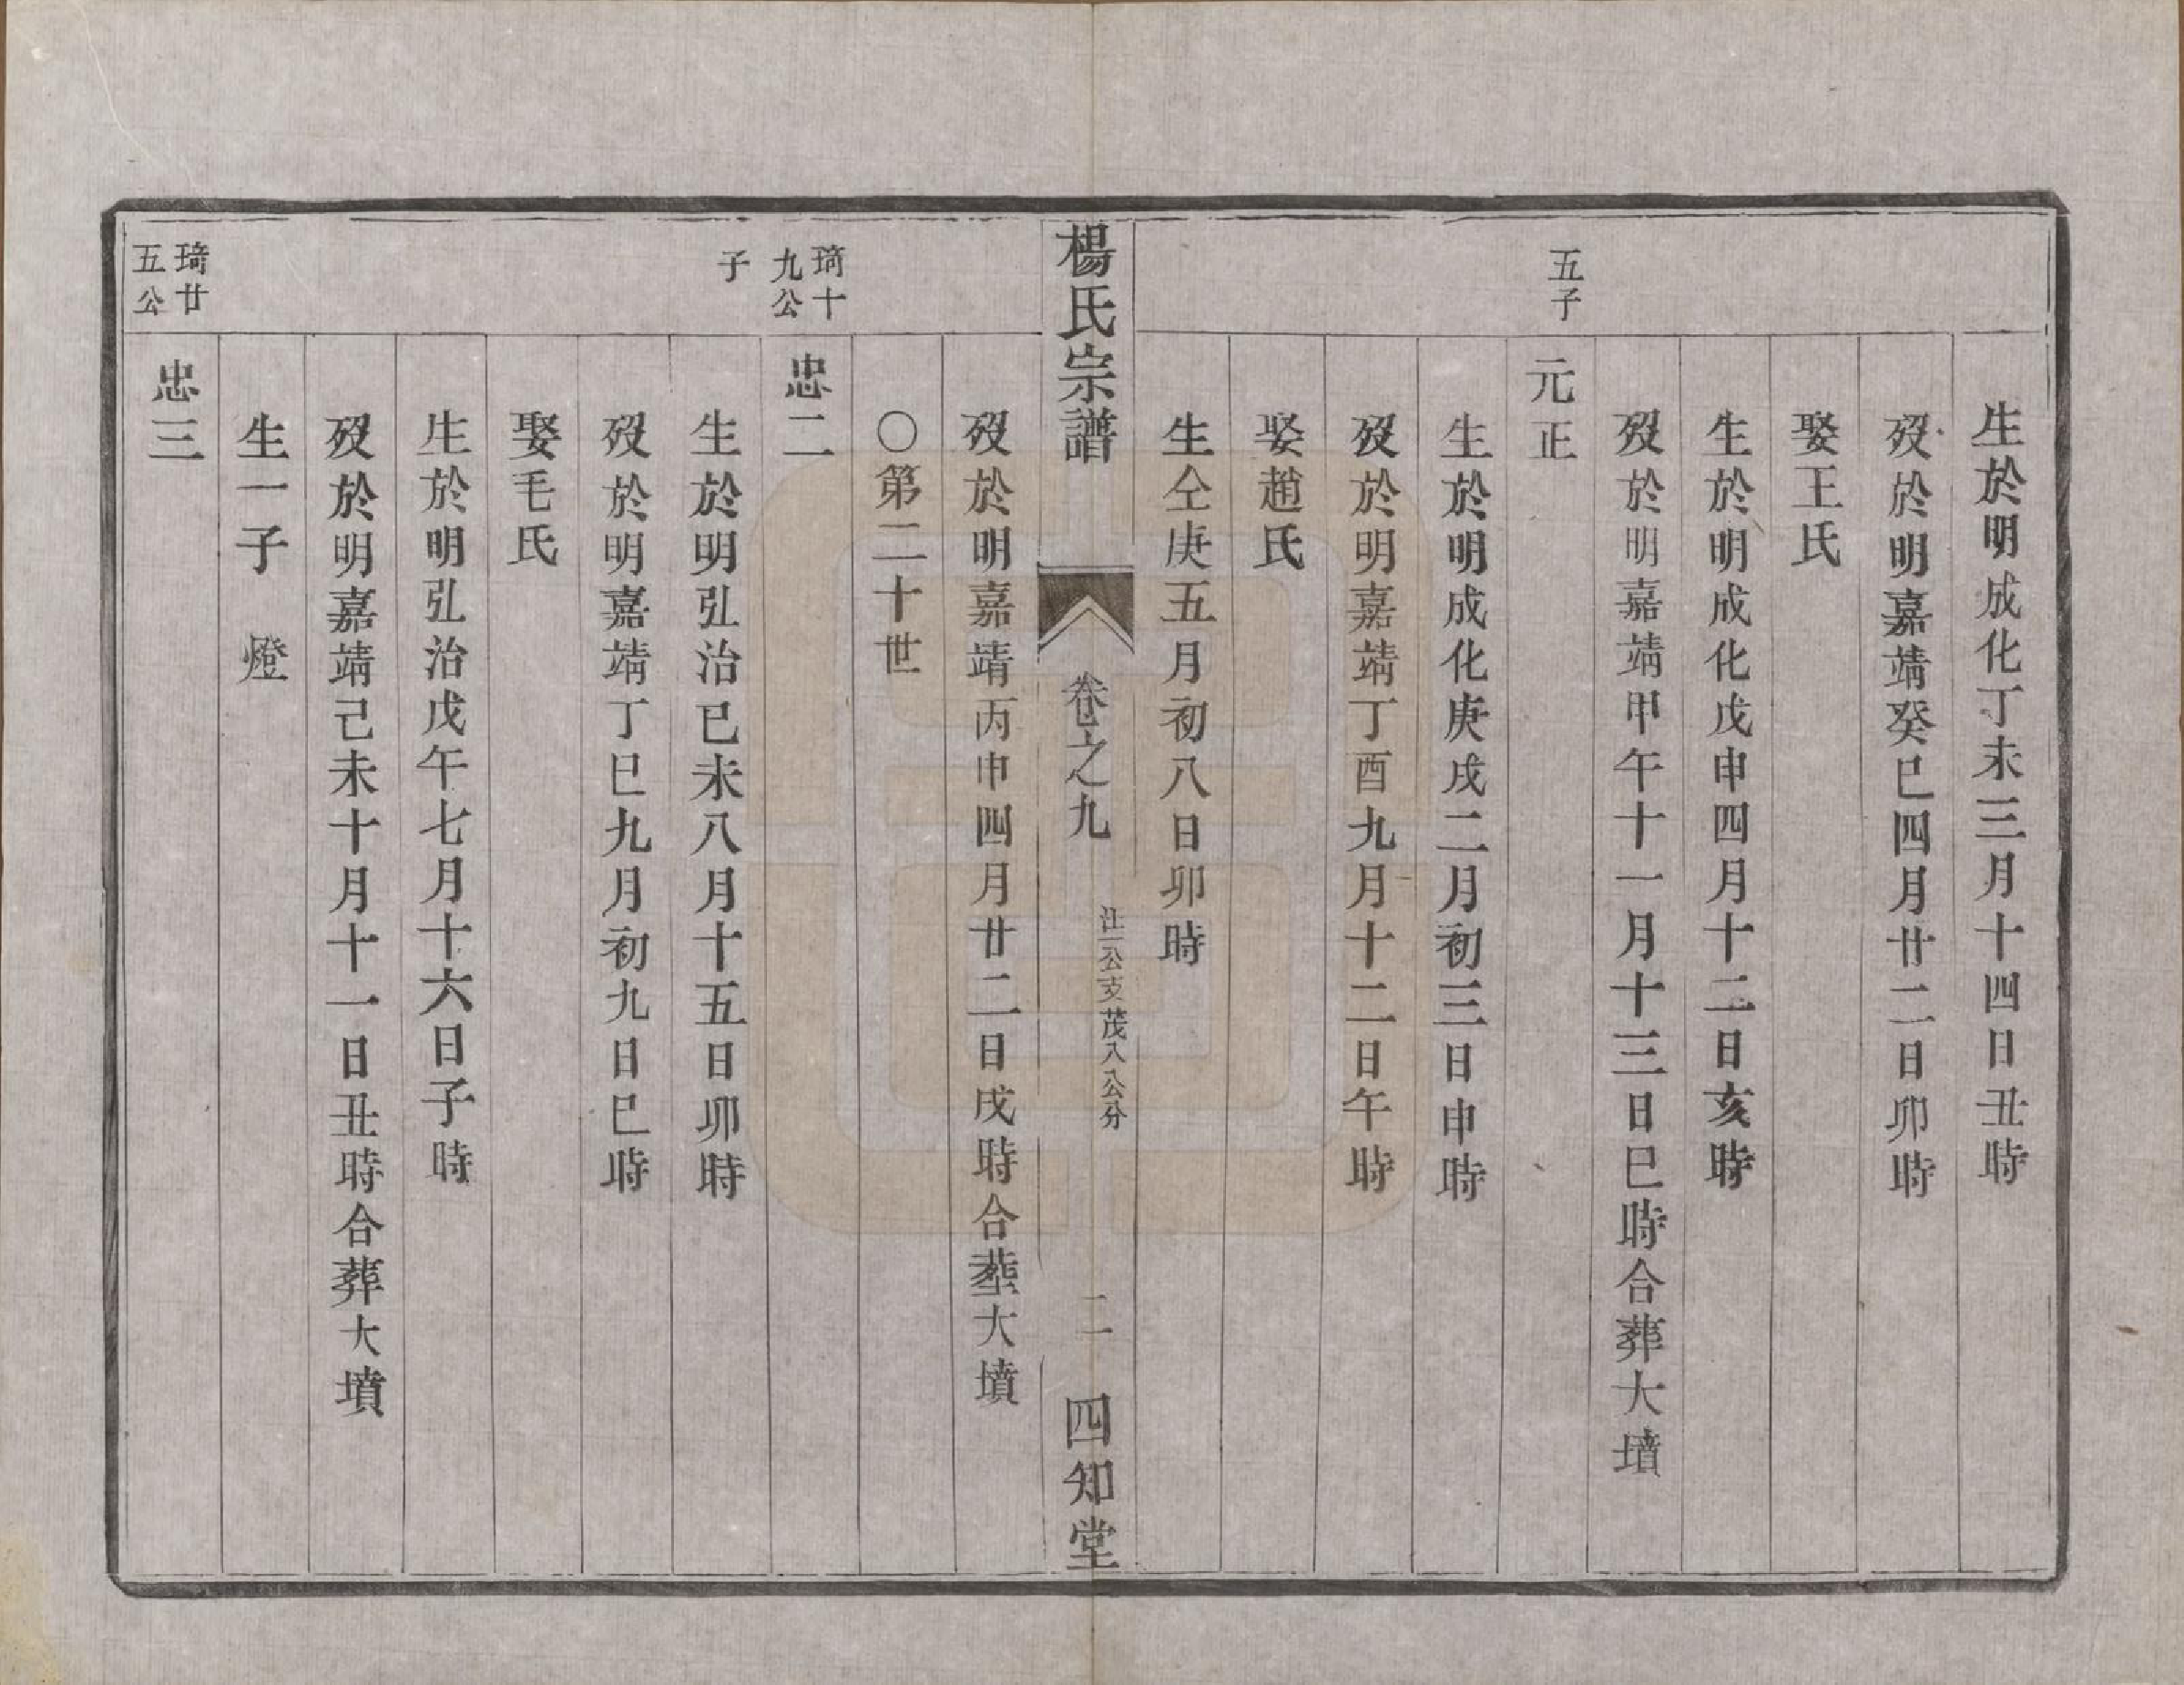 生於明成化丁未三月十四日丑時
歿於明嘉靖癸巳四月廿二日卯時
娶王氏
生於明成化戊申四月十二日亥時
歿於明嘉靖甲午十一月十三日巳時合葬大墳
五子
元正
生於明成化庚戌二月初三日申時
歿於明嘉靖丁酉九月十二日午時
娶趙氏
生仝庚五月初八日卯時
楊氏宗譜
卷之九
注一公支茂入公分
二
四知堂
歿於明嘉靖丙申四月廿二日戌時合塟大墳
〇第二十世
琦十
九公
子
忠二
生於明弘治已未八月十五日卯時
歿於明嘉靖丁巳九月初九日巳時
娶毛氏
生於明弘治戊午七月十六日子時
歿於明嘉靖己未十月十一日丑時合葬大墳
生一子 燈
琦廿
五公
忠三